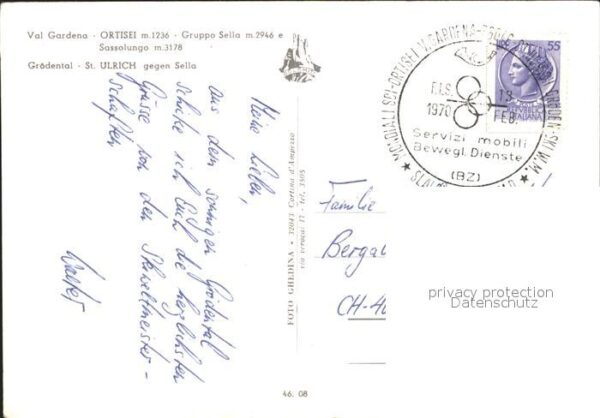 Val Gardena - ORTISEI m.1236 - Gruppo Sella m.2946 e
Sassolungo m.3178
Grödental - St. ULRICH gegen Sella
Meine Lieben,
aus dem sonnigen Grödental
schicke ich Euch die herzlichsten
Grüsse von den Skiweltmeister-
schaften
Walter
FOTO GHEDINA ★ 32043 Cortina d'Ampezzo
via 17 - Tel. 3505
MONDIALI SCI-ORTISEI V.GARDENA
SKI W.M.
F.I.S.
1970
13
FEB.
Servizi mobili
Bewegl. Dienste
(BZ)
55
ITALIANA
Familie
CH-40
privacy protection
Datenschutz
46.08